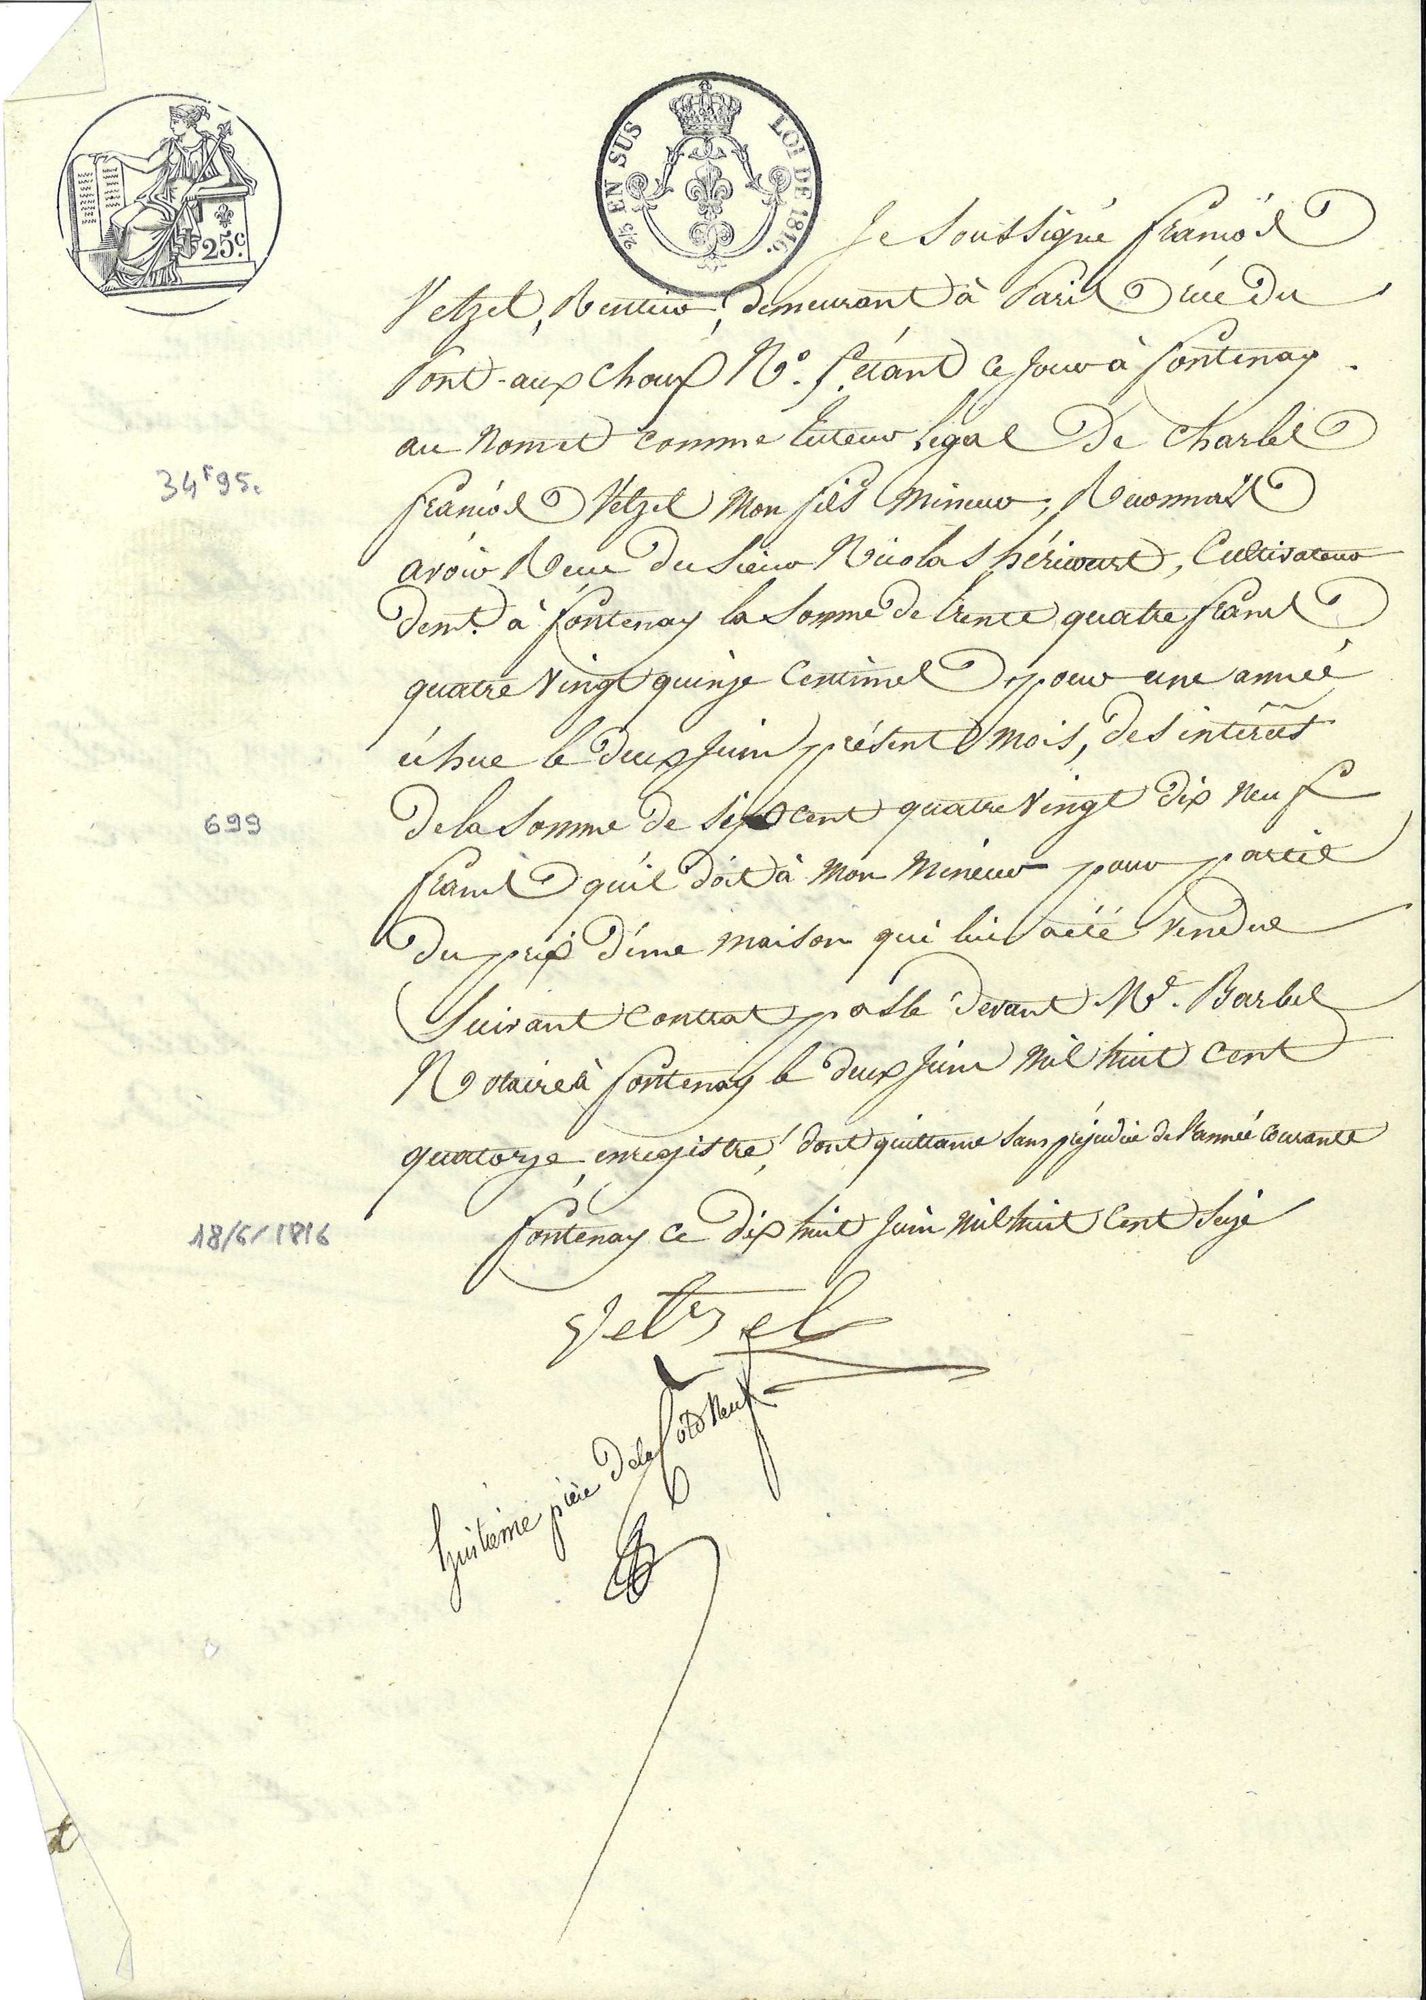 25c.
2/5 EN SUS LOI DE 1816.
Je Soussigné françois
Vetzel, Rentier, demeurant à Paris rue du
Pont-aux choux N°. étant ce Jour à fontenay
au Nom et comme tuteur légal De charles
françois Vetzel Mon fils Mineur, Reconnais
avoir Recu du Sieur Nicolas héricourt, Cultivateur
demt. à fontenay la Somme de trente quatre francs
quatre Vingt quinze Centimes pour une année
échue le deux Juin présent Mois, des intérêts
de la Somme de Sept cent quatre Vingt dix Neuf
francs qu'il doit à Mon Mineur pour partie
du prix d'une Maison qui lui a été Vendue
Suivant Contrat passé devant Me. Barbes
Notaire à fontenay le deux Juin Mil huit Cent
quatorze, enregistré, dont quittance sans préjudice de l'année Courante
fontenay ce dix huit Juin Mil huit Cent Seize
Vetzel
huitième pièce de la Cote Neuf
34f95c
699
18/6/1816